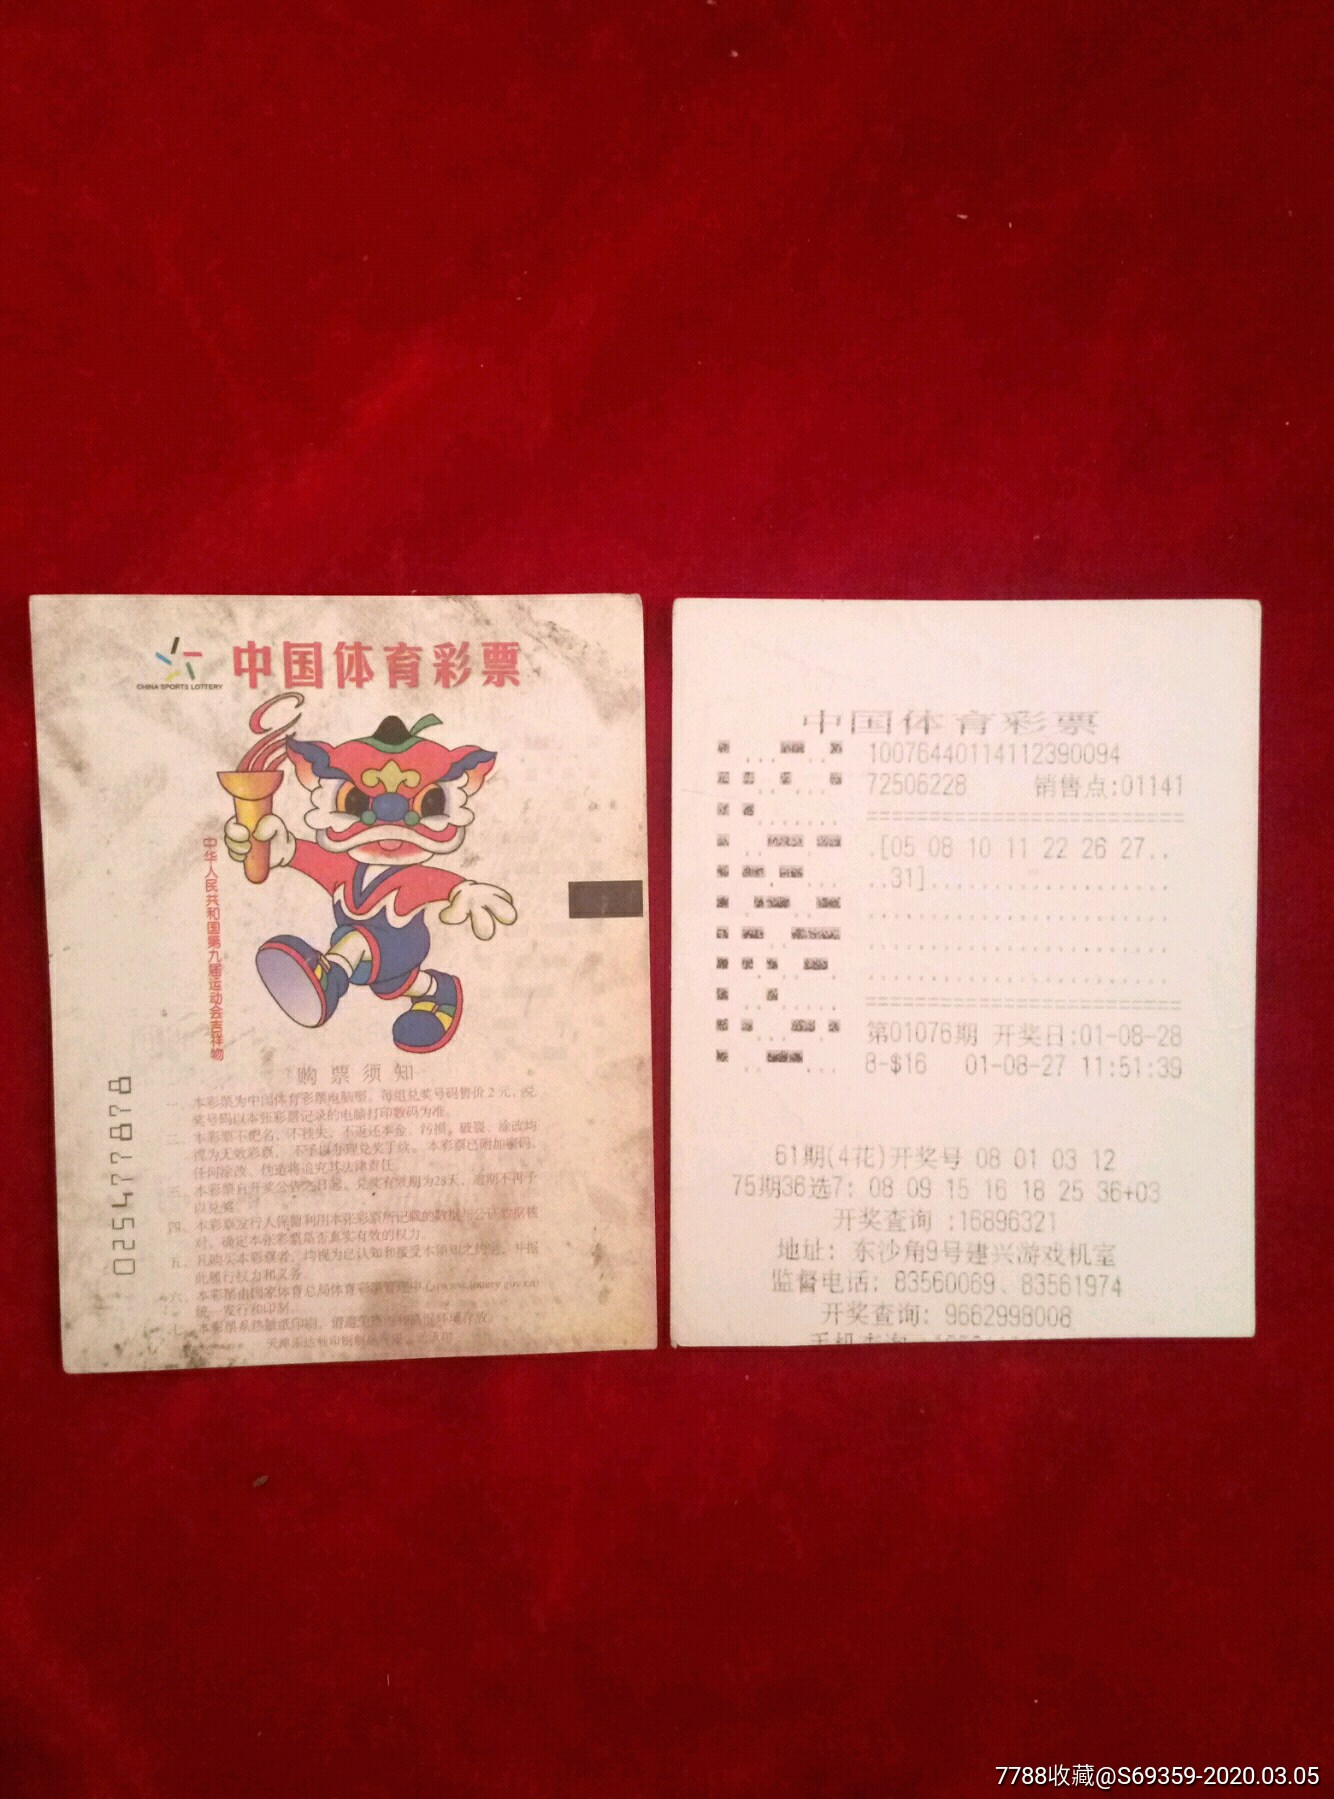 中国体育彩票
CHINA SPORTS LOTTERY
中华人民共和国第九届运动会吉祥物
购票须知
一、本彩票为中国体育彩票电脑型，每组兑奖号码售价2元，兑
奖号码以本张彩票记录的电脑打印数码为准。
二、本彩票不记名、不挂失、不返还本金，污损、破裂、涂改均
视为无效彩票，不予以办理兑奖手续。本彩票已附加密码，
任何涂改、伪造将追究其法律责任
三、本彩票自开奖公告之日起，兑奖有效期为28天，逾期不再予
以兑奖
四、本彩票发行人保留利用本张彩票所记载的数据与公证数据核
对，确定本张彩票是否真实有效的权力。
五、凡购买本彩票者，均视为已认知和接受本须知之约定，并据
此履行权力和义务。
六、本彩票由国家体育总局体育彩票管理中心(www.lottery.gov.cn)
统一发行和印制。
七、本彩票系热敏纸印刷，请避免
025477878
中国体育彩票
10076440114112390094
72506228 销售点:01141
.[05 08 10 11 22 26 27..
..31]..................
第01076期 开奖日:01-08-28
8-$16 01-08-27 11:51:39
61期(4花)开奖号 08 01 03 12
75期36选7: 08 09 15 16 18 25 36+03
开奖查询 :16896321
地址: 东沙角9号建兴游戏机室
监督电话: 83560069、83561974
开奖查询: 9662998008
手机查询
7788收藏@S69359-2020.03.05